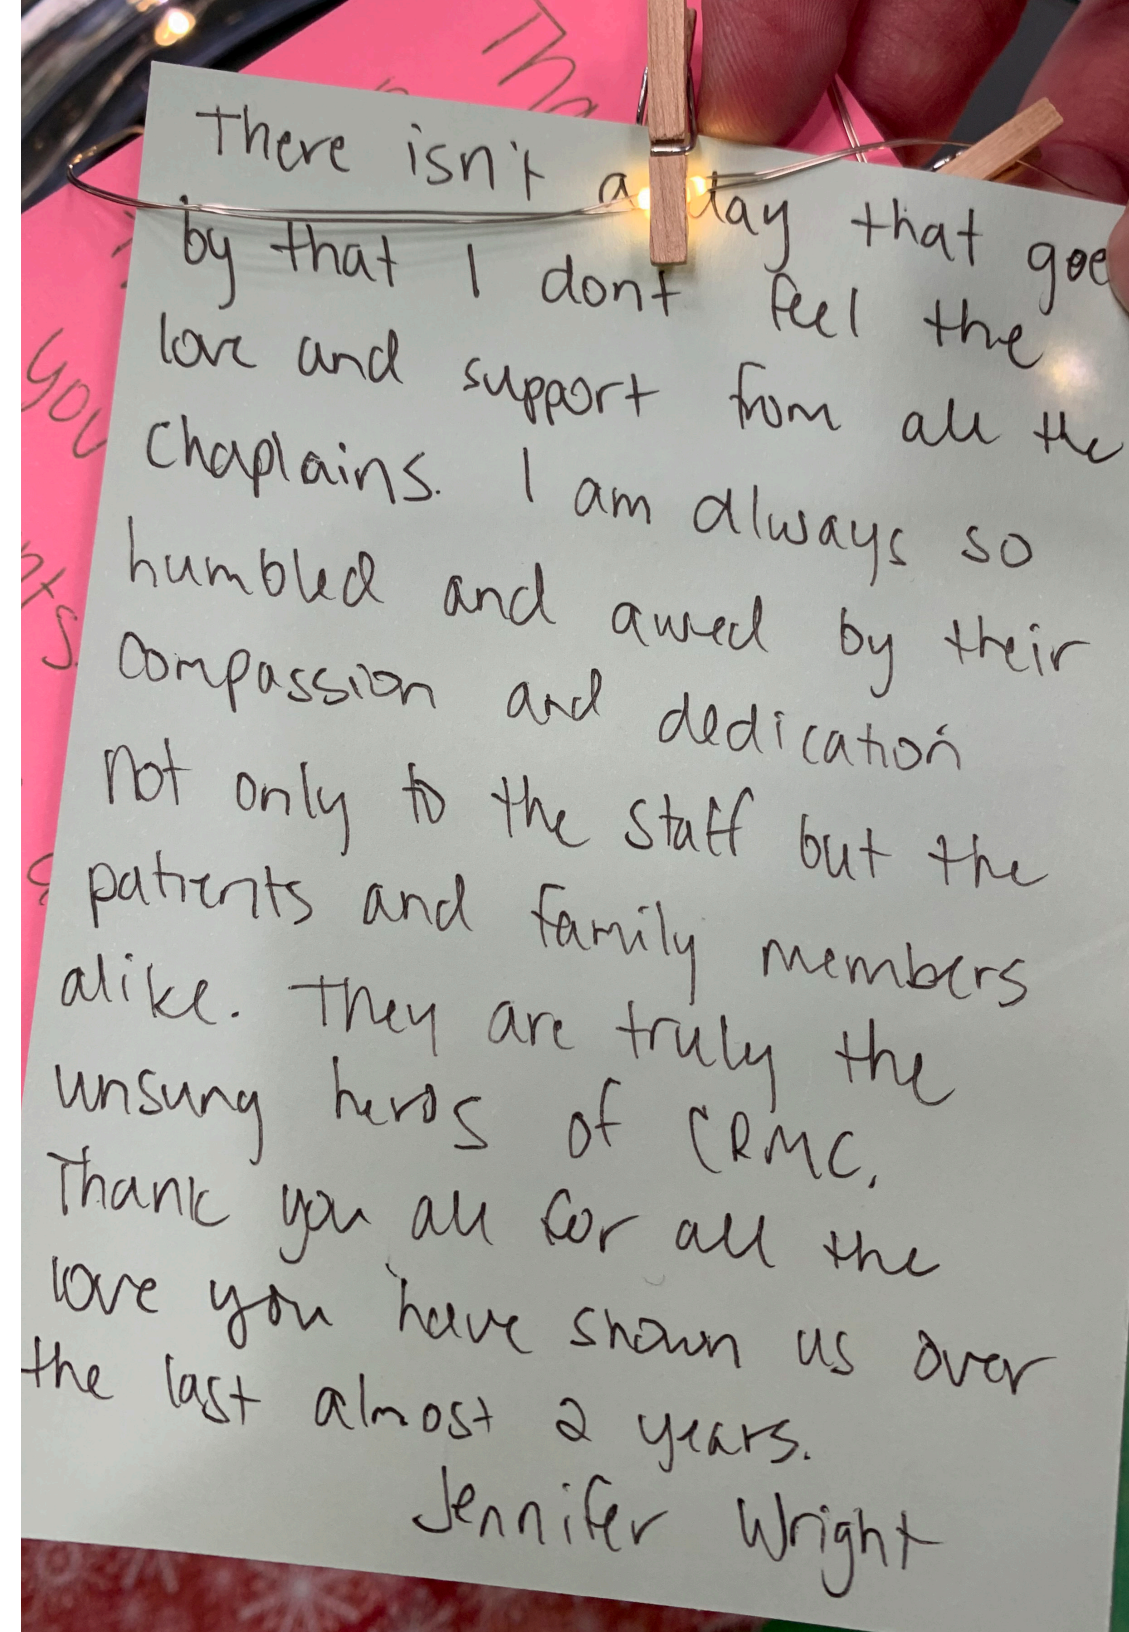 There isn't a day that goe
by that I dont feel the
love and support from all the
Chaplains. I am always so
humbled and awed by their
compassion and dedication
not only to the staff but the
patients and family members
alike. They are truly the
unsung heros of CRMC.
Thank you all for all the
love you have shown us over
the last almost 2 years.
Jennifer Wright
Tha
you
nts.